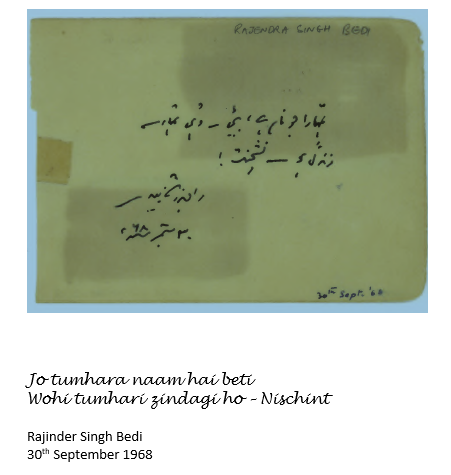 RAJENDRA SINGH BEDI
تمہارا جو نام ہے، بیٹی – وہی تمہاری
زندگی ہو – نشچنت !
راجندر سنگھ بیدی
۳۰ ستمبر ۶۸ء
30th Sept. '68
Jo tumhara naam hai beti
Wohi tumhari zindagi ho – Nischint
Rajinder Singh Bedi
30th September 1968